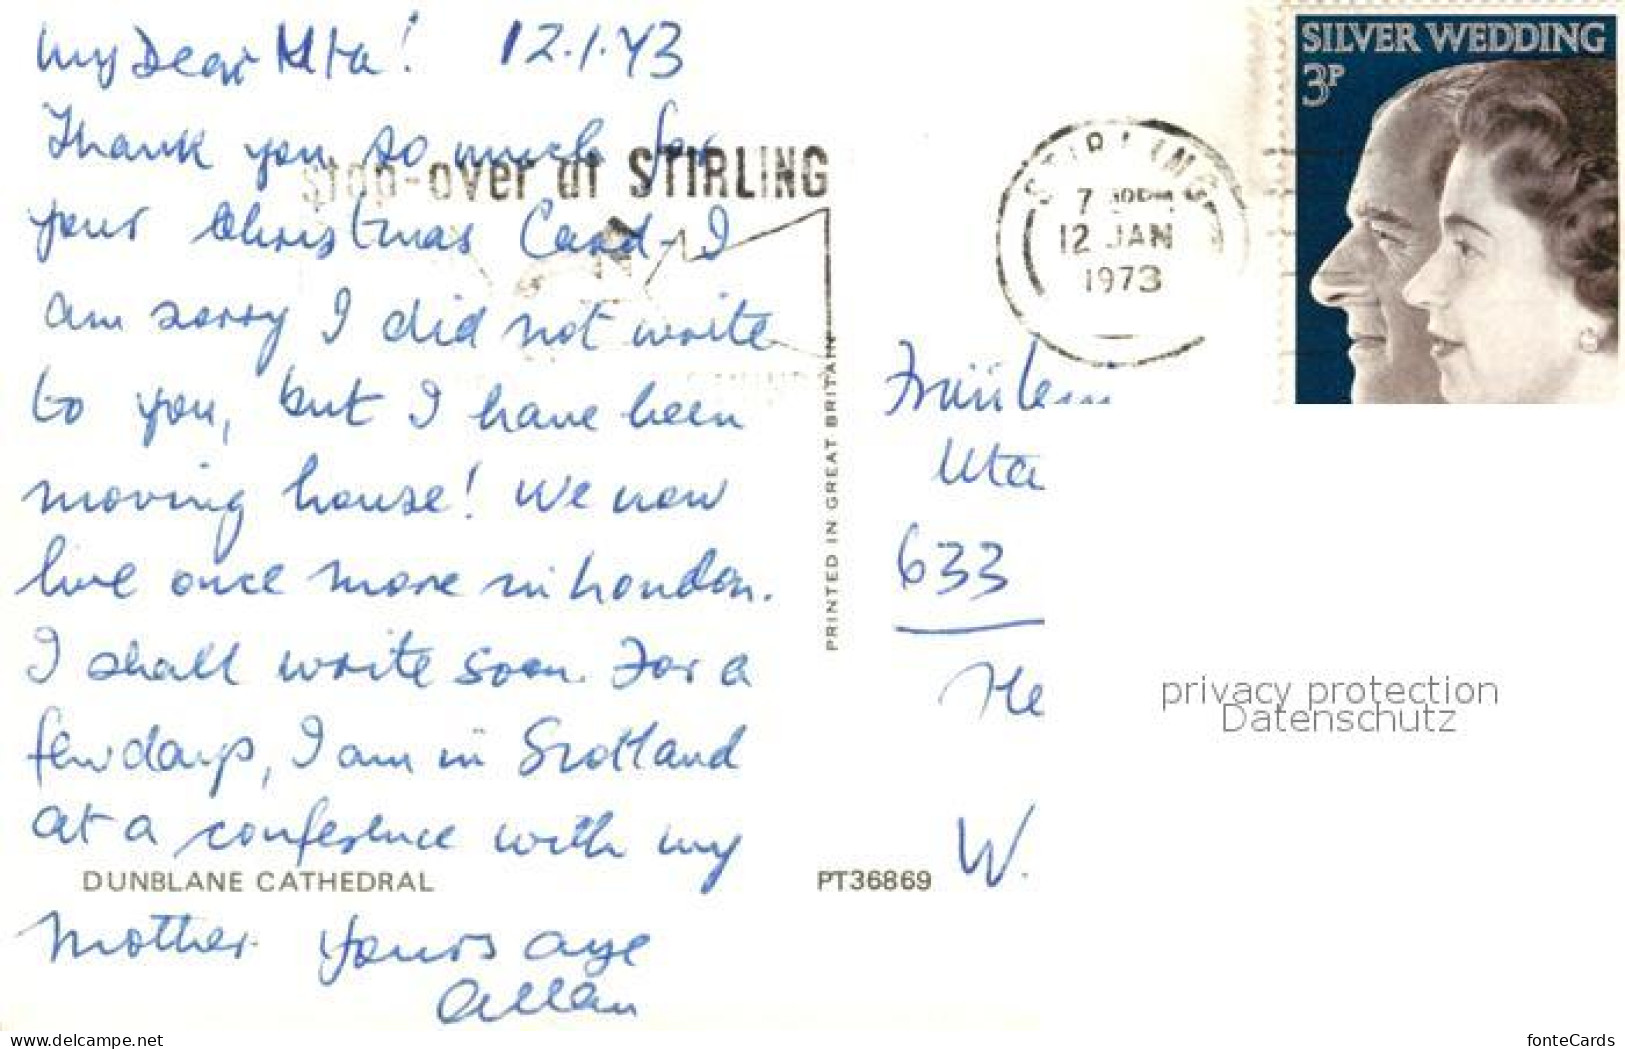 My Dear Uta! 12.1.73
Thank you so much for
your Christmas Card - I
am sorry I did not write
to you, but I have been
moving house! We now
live once more in London.
I shall write soon. For a
few days, I am in Scotland
at a conference with my
Mother. Yours aye
Allan
DUNBLANE CATHEDRAL
PT36869
PRINTED IN GREAT BRITAIN
stop-over at STIRLING
STIRLING
12 JAN
1973
SILVER WEDDING
3P
Fräulein
Uta
633
He
W.
privacy protection
Datenschutz
www.delcampe.net
fonteCards